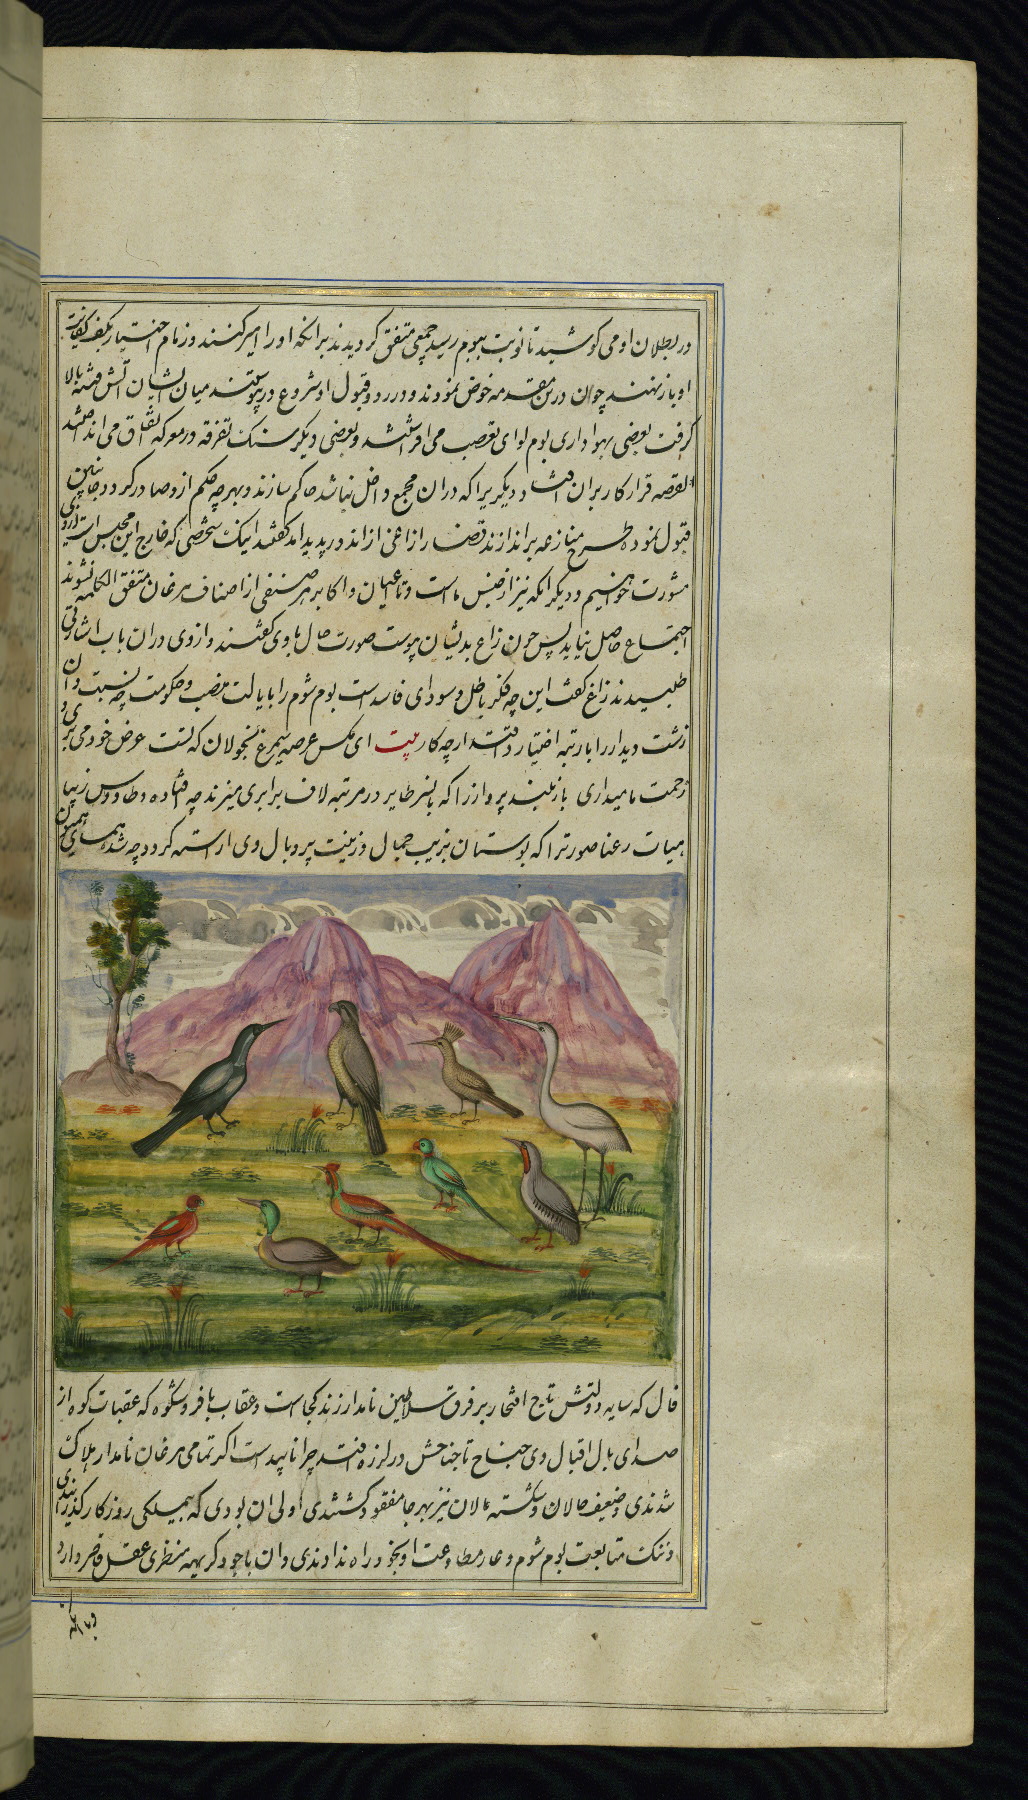 در بطلان او می کوشید تا نوبت ببوم رسید جمعی متفق کردیدند برانکه او را امیر کنند و زمام اختیار بکف کفایت
او باز نهند چون درین مقدمه خوض نمودند و در رد و قبول او شروع در پیوستند میان ایشان آتش فتنه بالا
کرفت بعضی بهواداری بوم لوای تعصب می افراشتند و بعضی دیکر سنک تفرقه در معرکه نفاق می انداختند
القصه قرار کار بران افتاد دیکریرا که دران مجمع داخل نباشد حاکم سازند و بهر چه حکم ازو صادر کردد جانبین
قبول نموده طرح منازعه براندازند قضا را زاغی از دور پدید امد کفتند اینک شخصی که خارج این مجلس است ازو
مشورت خواهیم و دیکر انکه نیز از جنس ماست و تا اعیان و اکابر هر صنفی از اصناف مرغان متفق الکلمه نشوند
اجتماع حاصل نیاید پس چون زاغ بدیشان پیوست صورت حال باوی کفتند و از وی دران باب اشارتی
طلبیدند زاغ کفت این چه فکر باطل و سودای فاسد است بوم شوم را با یالت منصب و حکومت چه نسبت و ان
زشت دیدار را با رتبه اختیار و اقتدار چه کار بیت ای مکس عرصه سیمرغ نه جولان که تست عرض خود می بری و
زحمت ما میداری باز بلند پرواز را که با نسر طایر در مرتبه لاف برابری میزند چه افتاده و طاووس زیبا
هیات رعنا صورترا که بوستان بزیب جمال و زینت پر و بال وی اراسته کردد چه شد همای همایون
فال که سایه دولتش تاج افتخار بر فرق سلاطین نامدار زند کجاست و عقاب بافر و شکوه که عقبات کوه از
صدای بال اقبال وی جناح تا جناحش در لرزه افتد چرا ناپیداست اکر تمامی مرغان نامدار هلاک
شدندی و ضعیف حالان و شکسته بالان نیز بهر جا مفقود کشتندی اولی ان بودی که همیکی روزکار کذرانیدندی
و ننک متابعت بوم شوم و عار مطاوعت او بخود راه ندادندی و ان با چود کریهه منظری عقل قاصر دارد
و با آنکه